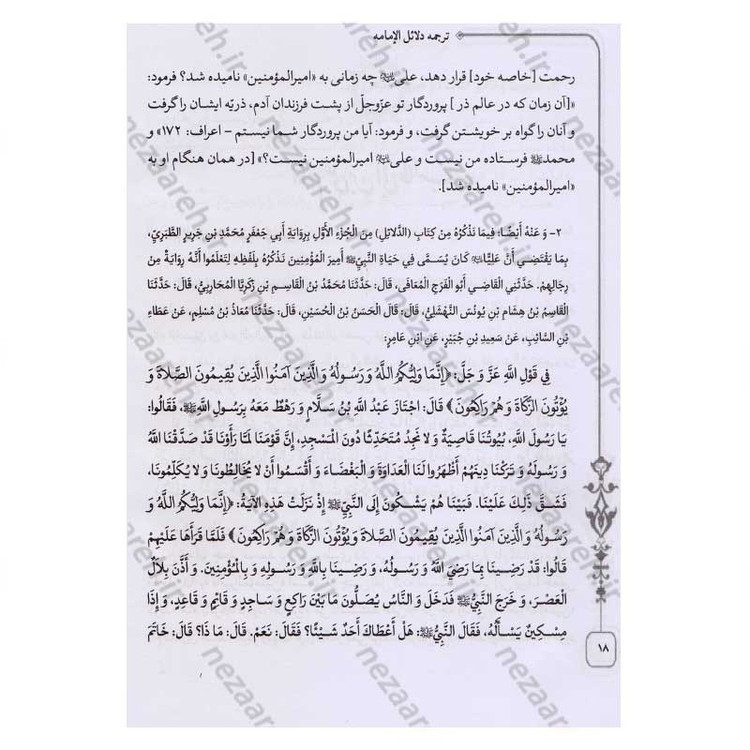 ترجمه دلائل الإمامه
رحمت [خاصه خود] قرار دهد، علی چه زمانی به «امیرالمؤمنین» نامیده شد؟ فرمود:
«[آن زمان که در عالم ذر] پروردگار تو عزّوجلّ از پشت فرزندان آدم، ذریّه ایشان را گرفت
و آنان را گواه بر خویشتن گرفت، و فرمود: آیا من پروردگار شما نیستم – اعراف: ۱۷۲» و
محمدﷺ فرستاده من نیست و علی امیرالمؤمنین نیست؟» [در همان هنگام او به
«امیرالمؤمنین» نامیده شد].
۲- وَ عَنْهُ أَيْضًا: فِيمَا نَذْكُرُهُ مِنْ كِتَابِ (الدَّلَائِلِ) مِنَ الْجُزْءِ الْأَوَّلِ بِرِوَايَةِ أَبِي جَعْفَرٍ مُحَمَّدِ بْنِ جَرِيرٍ الطَّبَرِيِّ،
بِمَا يَقْتَضِي أَنَّ عَلِيًّا كَانَ يُسَمَّى فِي حَيَاةِ النَّبِيِّﷺ أَمِيرَ الْمُؤْمِنِينَ نَذْكُرُهُ بِلَفْظِهِ لِتَعْلَمُوا أَنَّهُ رِوَايَةٌ مِنْ
رِجَالِهِمْ. حَدَّثَنِي الْقَاضِي أَبُو الْفَرَجِ الْمُعَافَى، قَالَ: حَدَّثَنَا مُحَمَّدُ بْنُ الْقَاسِمِ بْنِ زَكَرِيَّا الْمُحَارِبِيُّ، قَالَ: حَدَّثَنَا
الْقَاسِمُ بْنُ هِشَامِ بْنِ يُونُسَ النَّهْشَلِيُّ، قَالَ: قَالَ الْحَسَنُ بْنُ الْحُسَيْنِ، قَالَ: حَدَّثَنَا مُعَاذُ بْنُ مُسْلِمٍ، عَنْ عَطَاءِ
بْنِ السَّائِبِ، عَنْ سَعِيدِ بْنِ جُبَيْرٍ، عَنِ ابْنِ عَامِرٍ:
فِي قَوْلِ اللَّهِ عَزَّ وَ جَلَّ: ﴿إِنَّمَا وَلِيُّكُمُ اللَّهُ وَ رَسُولُهُ وَ الَّذِينَ آمَنُوا الَّذِينَ يُقِيمُونَ الصَّلَاةَ وَ
يُؤْتُونَ الزَّكَاةَ وَ هُمْ رَاكِعُونَ﴾ قَالَ: اجْتَازَ عَبْدُ اللَّهِ بْنُ سَلَّامٍ وَ رَهْطٌ مَعَهُ بِرَسُولِ اللَّهِﷺ، فَقَالُوا:
يَا رَسُولَ اللَّهِ، بُيُوتُنَا قَاصِيَةٌ وَ لَا نَجِدُ مُتَحَدَّثًا دُونَ الْمَسْجِدِ، إِنَّ قَوْمَنَا لَمَّا رَأَوْنَا قَدْ صَدَّقْنَا اللَّهَ
وَ رَسُولَهُ وَ تَرَكْنَا دِينَهُمْ أَظْهَرُوا لَنَا الْعَدَاوَةَ وَ الْبَغْضَاءَ وَ أَقْسَمُوا أَنْ لَا يُخَالِطُونَا وَ لَا يُكَلِّمُونَا،
فَشَقَّ ذَلِكَ عَلَيْنَا. فَبَيْنَا هُمْ يَشْكُونَ إِلَى النَّبِيِّﷺ إِذْ نَزَلَتْ هَذِهِ الْآيَةُ: ﴿إِنَّمَا وَلِيُّكُمُ اللَّهُ وَ
رَسُولُهُ وَ الَّذِينَ آمَنُوا الَّذِينَ يُقِيمُونَ الصَّلَاةَ وَ يُؤْتُونَ الزَّكَاةَ وَ هُمْ رَاكِعُونَ﴾ فَلَمَّا قَرَأَهَا عَلَيْهِمْ
قَالُوا: قَدْ رَضِينَا بِمَا رَضِيَ اللَّهُ وَ رَسُولُهُ، وَ رَضِينَا بِاللَّهِ وَ رَسُولِهِ وَ بِالْمُؤْمِنِينَ. وَ أَذَّنَ بِلَالٌ
الْعَصْرَ، وَ خَرَجَ النَّبِيُّﷺ فَدَخَلَ وَ النَّاسُ يُصَلُّونَ مَا بَيْنَ رَاكِعٍ وَ سَاجِدٍ وَ قَائِمٍ وَ قَاعِدٍ، وَ إِذَا
مِسْكِينٌ يَسْأَلُ، فَقَالَ النَّبِيُّﷺ: هَلْ أَعْطَاكَ أَحَدٌ شَيْئًا؟ فَقَالَ: نَعَمْ. قَالَ: مَا ذَا؟ قَالَ: خَاتَمَ
۱۸
nezaareh.ir